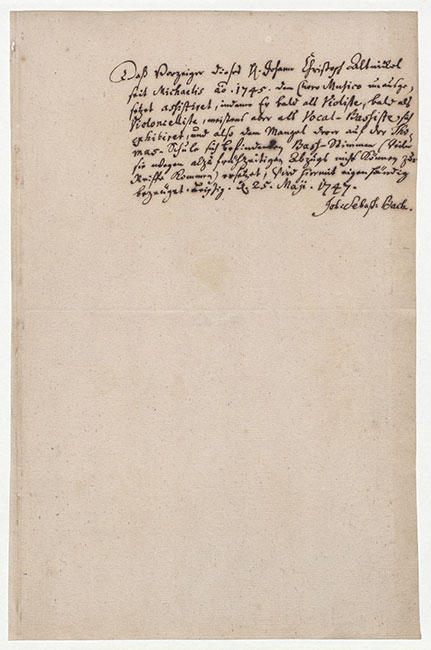 Daß Vorzeiger dieses H. Johann Christoph Altnickol
seit Michaelis ao. 1745. dem Choro Musico unausge,
setzet assistiret, indeme Er bald als Violiste, bald als
Violoncelliste, meistens aber als Vocal-Bassiste sich
exhibiret, und also dem Mangel derer auf der Tho,
mas-Schule sich befindenden Bass-Stimmen (weiln
sie wegen alzu frühzeitigen Abzugs nicht können zur
Reiffe kommen) ersetzet; wird hiermit eigenhändig
bezeuget. Leipzig. d. 25. Maji. 1747.
Joh: Sebast: Bach.